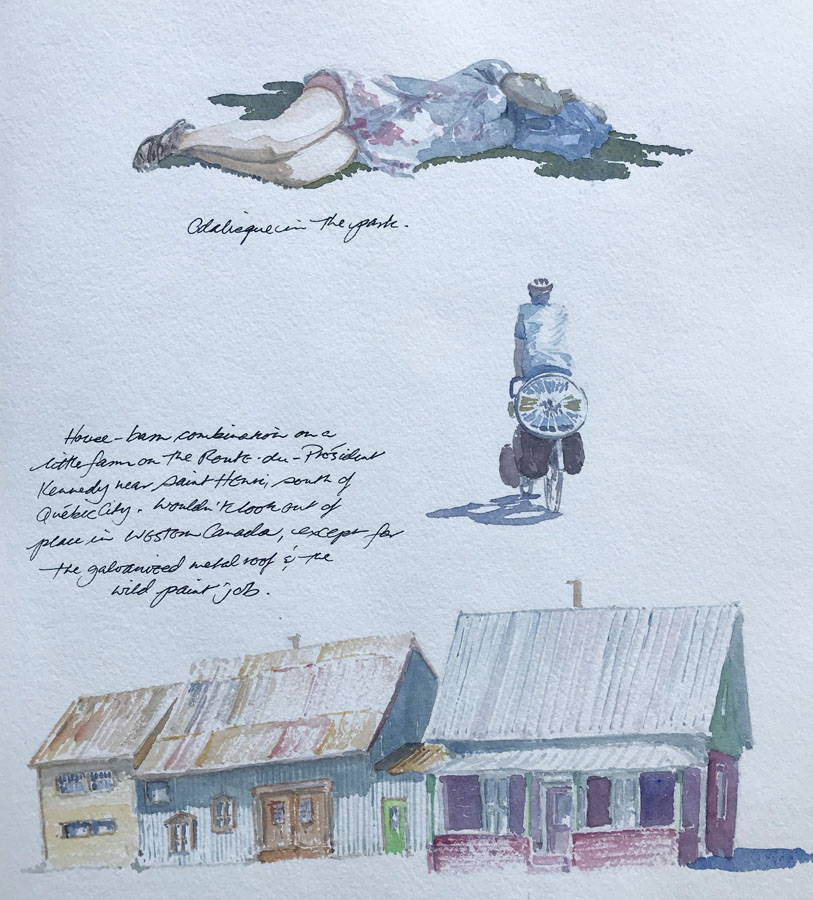 Odalisque in the park.
House-barn combination on a
little farm on the Route-du-Président
Kennedy near Saint Henri, south of
Québec City. Wouldn't look out of
place in Western Canada, except for
the galvanized metal roof & the
wild paint job.